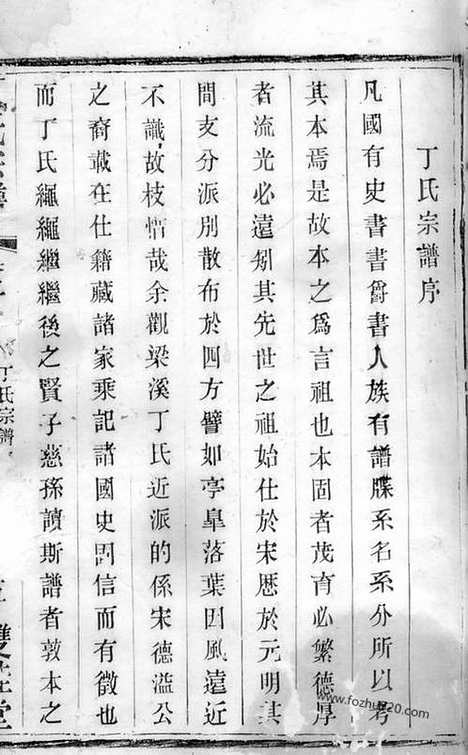 丁氏宗譜序
凡國有史書書爵書人族有譜牒系名系分所以考
其本焉是故本之爲言祖也本固者茂育必繁德厚
者流光必遠矧其先世之祖始仕於宋歷於元明其
間支分派別散布於四方譬如亭臯落葉因風遠近
不識故枝惜哉余觀梁溪丁氏近派的係宋德溢公
之裔載在仕籍藏諸家乘記諸國史罔信而有徵也
而丁氏繩繩繼繼後之賢子慈孫讀斯譜者敦本之
丁氏宗譜
雙桂堂
www.fozhu920.com